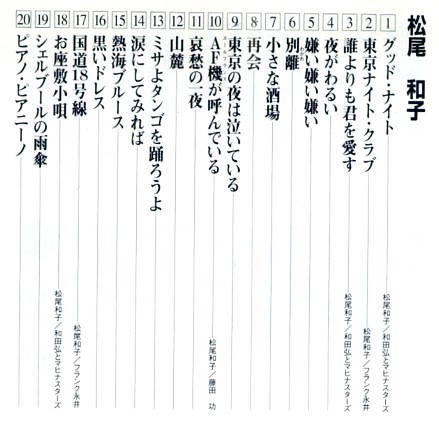 松尾 和子
1 グッド・ナイト 松尾和子／和田弘とマヒナスターズ
2 東京ナイト・クラブ 松尾和子／フランク永井
3 誰よりも君を愛す 松尾和子／和田弘とマヒナスターズ
4 夜がわるい
5 嫌い嫌い嫌い
6 別離
7 小さな酒場
8 再会
9 東京の夜は泣いている
10 AF機が呼んでいる 松尾和子／藤田 功
11 哀愁の一夜
12 山麓
13 ミサよタンゴを踊ろうよ
14 涙にしてみれば
15 熱海ブルース
16 黒いドレス
17 国道18号線 松尾和子／フランク永井
18 お座敷小唄 松尾和子／和田弘とマヒナスターズ
19 シェルブールの雨傘
20 ピアノ・ピアニーノ